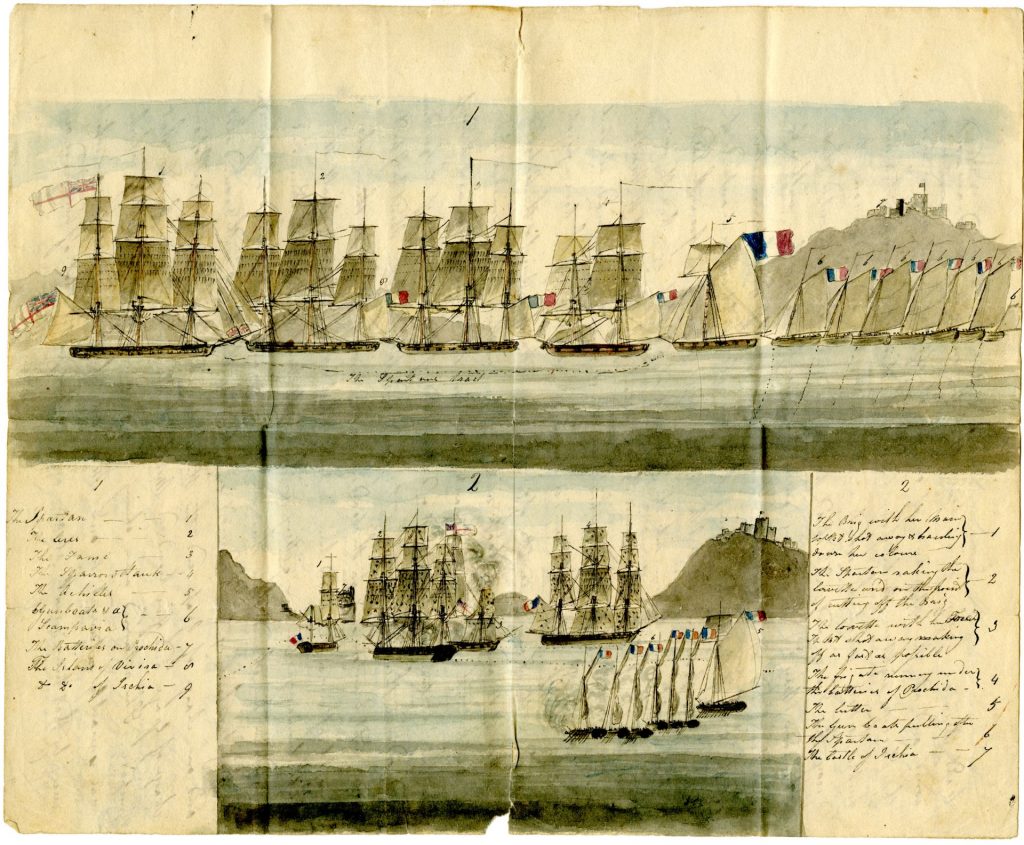 1
2
5
6
The
1
The Spartan 1
The Ceres 2
The Fame 3
The Sparrow Hawk 4
The Achilles 5
Gunboats & a
Scampavia 6
The Batteries on Prochida - 7
The Island of - 8
& & of Ischia - 9
2
2
The Brig with her Main
shot away & hauling 1
down her
The Spartan raking the
and on the point 2
of cutting off the Brig
The with her Fore
shot away making 3
off as fast as possible
The frigate running under
the batteries of Prochida - 4
The Cutter 5
The Gun boats pulling after
the Spartan 6
The Castle of Ischia 7